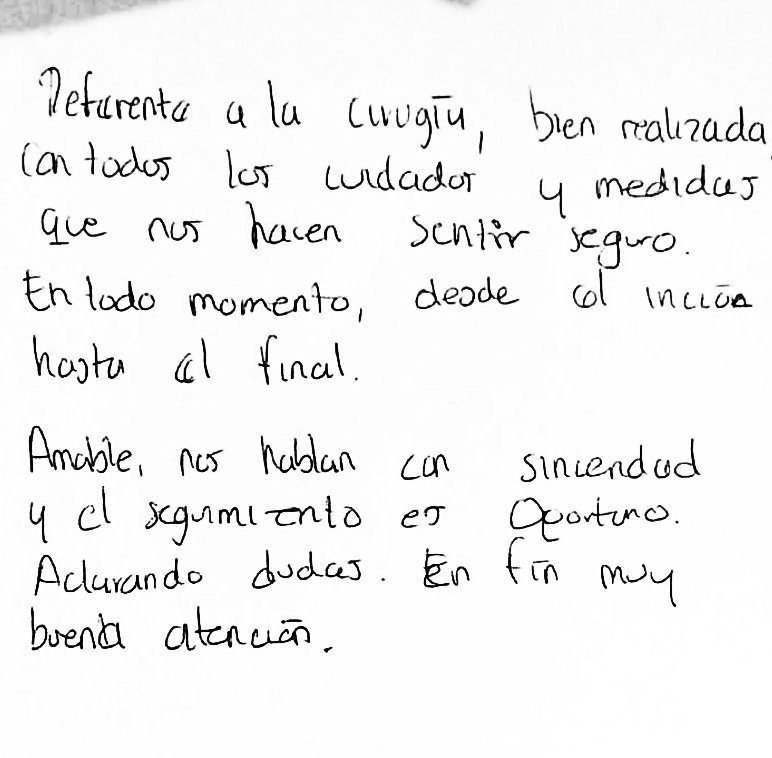 Referente a la cirugía, bien realizada
con todos los cuidador y medidas
que nos hacen sentir seguro.
En todo momento, desde el inicio
hasta el final.
Amable, nos hablan con sinceridad
y el seguimiento es Oportuno.
Aclarando dudas. En fin muy
buena atención.